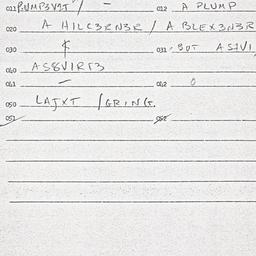 011 PUMPSVST / - 012 A PLUMP
020 A HILC3RN3R / A BLEX3N3R
030 031 BOT AS1V1
040 AS8V1RT3
041 - 042 0
050 LAJXT / GRING.
051 052